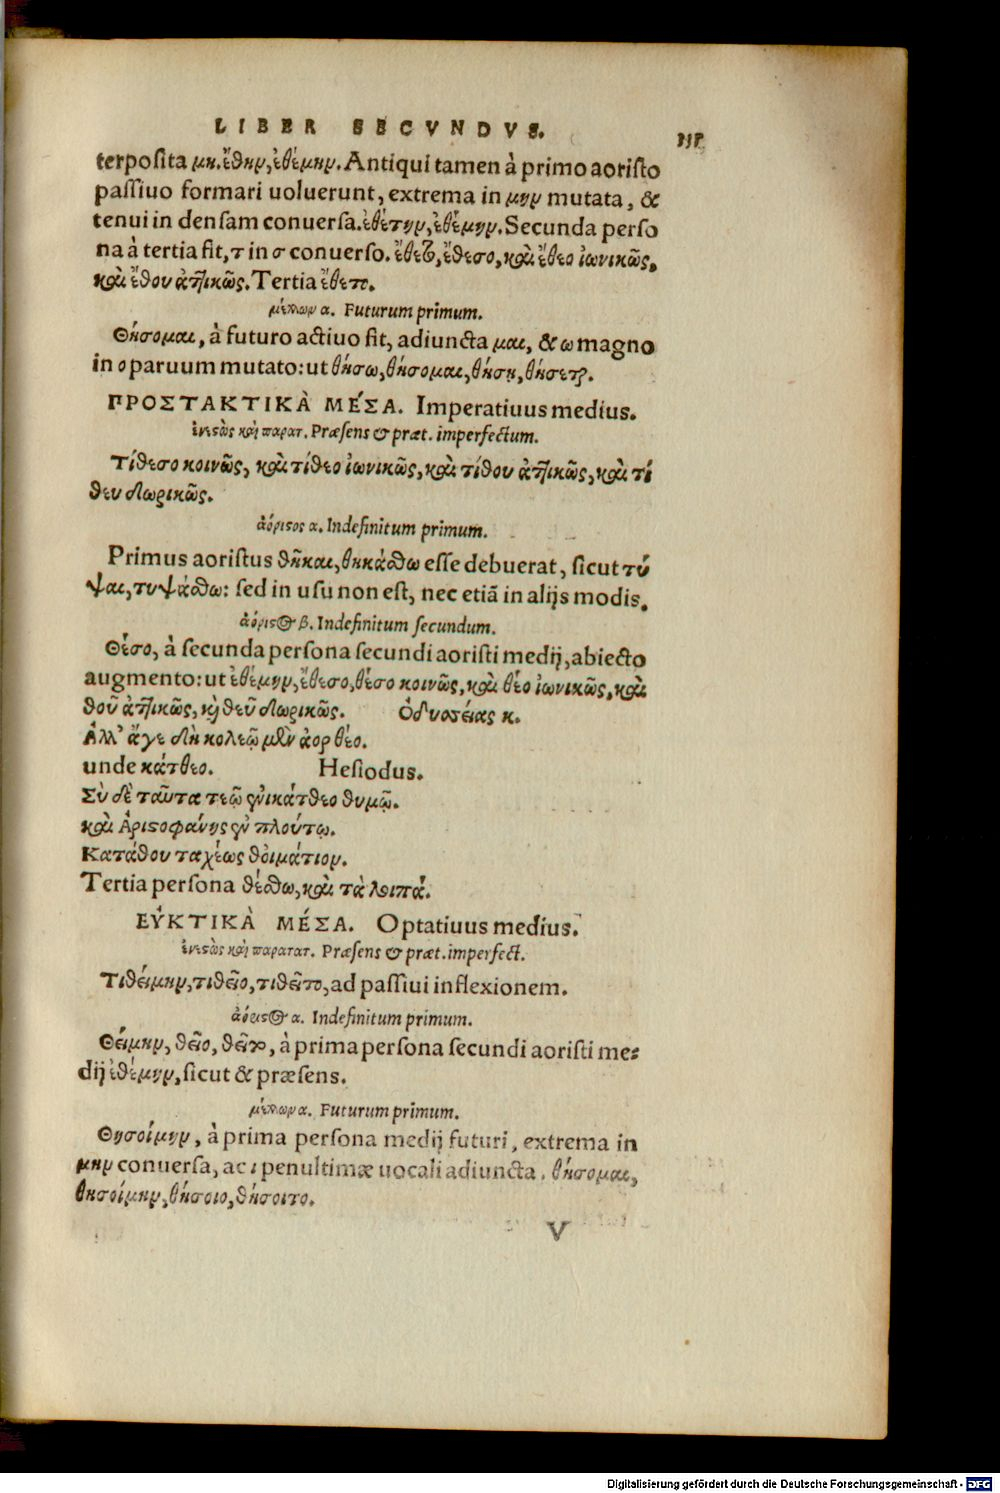 LIBER SECVNDVS.
terposita μη. ἔθην, ἐθέμην. Antiqui tamen à primo aoristo
passiuo formari uoluerunt, extrema in μην mutata, &
tenui in densam conuersa. ἐθέτην, ἐθέμην. Secunda perso
na à tertia fit, τ in σ conuerso. ἔθετο, ἔθεσο, καὶ ἔθεο ἰωνικῶς,
καὶ ἔθου ἀττικῶς. Tertia ἔθετο.
μέλλων α. Futurum primum.
Θήσομαι, à futuro actiuo fit, adiuncta μαι, & ω magno
in ο paruum mutato: ut θήσω, θήσομαι, θήσῃ, θήσεται.
ΠΡΟΣΤΑΚΤΙΚᾺ ΜΈΣΑ. Imperatiuus medius.
ἐνεστὼς καὶ παρατ. Præsens & præt. imperfectum.
Τίθεσο κοινῶς, καὶ τίθεο ἰωνικῶς, καὶ τίθου ἀττικῶς, καὶ τί
θευ δωρικῶς.
ἀόριστος α. Indefinitum primum.
Primus aoristus θῆκαι, θηκάσθω esse debuerat, sicut τύ
ψαι, τυψάσθω: sed in usu non est, nec etiã in alijs modis.
ἀόριστος β. Indefinitum secundum.
Θέσο, à secunda persona secundi aoristi medij, abiecto
augmento: ut ἐθέμην, ἔθεσο, θέσο κοινῶς, καὶ θέο ἰωνικῶς, καὶ
θοῦ ἀττικῶς, καὶ θεῦ δωρικῶς. Ὀδυσσείας κ.
Ἀλλ' ἄγε δὴ κολεῷ μὲν ἄορ θέο.
unde κάτθεο. Hesiodus.
Σὺ δὲ ταῦτα τεῷ ἐνικάτθεο θυμῷ.
καὶ Ἀριστοφάνης ἐν πλούτῳ.
Κατάθου ταχέως θοἰμάτιον.
Tertia persona θέσθω, καὶ τὰ λοιπά.
ΕΥ̓ΚΤΙΚᾺ ΜΈΣΑ. Optatiuus medius.
ἐνεστὼς καὶ παρατατ. Præsens & præt. imperfect.
Τιθείμην, τιθεῖο, τιθεῖτο, ad passiui inflexionem.
ἀόριστος α. Indefinitum primum.
Θείμην, θεῖο, θεῖτο, à prima persona secundi aoristi me-
dij ἐθέμην, sicut & præsens.
μέλλων α. Futurum primum.
Θησοίμην, à prima persona medij futuri, extrema in
μην conuersa, ac ι penultimæ uocali adiuncta. θήσομαι,
θησοίμην, θήσοιο, θήσοιτο.
V
Digitalisierung gefördert durch die Deutsche Forschungsgemeinschaft - DFG